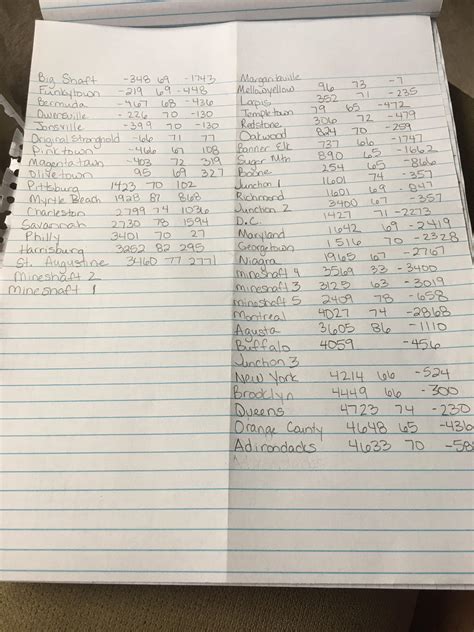 Big Shaft -348 69 -1743
Funkytown -219 69 -448
Bermuda -467 68 -436
Owensville -226 70 -130
Jonsville -399 70 -130
Original Stronghold -66 71 77
Pinktown -466 67 108
Magenta town -403 72 319
Olivetown 95 69 327
Pittsburg 1423 70 102
Myrtle Beach 1928 87 868
Charleston 2799 74 1036
Savannah 2730 78 1594
Philly 3401 70 27
Harrisburg 3252 82 295
St. Augustine 3460 77 2771
Mineshaft 2
Mineshaft 1
Margaritaville
Mellowyellow 96 73 -7
Lapis 352 71 -235
Templetown 79 65 -472
Redstone 306 72 -479
Oakwood 824 70 -259
Banner Elk 737 66 -1741
Sugar Mtn 890 65 -1662
Boone 254 65 -866
Junction 1 1601 74 -357
Richmond 1601 69 -847
Junction 2 3400 67 -1357
D.C. 1427 71 -2273
Maryland 1642 69 -2419
Georgetown 1516 70 -2328
Niagra 1965 67 -2767
mineshaft 4 3569 33 -3400
mineshaft 3 3125 63 -3019
mineshaft 5 2409 78 -658
Montreal 4027 74 -2868
Agusta 3605 86 -1110
Buffalo 4059 -456
Junction 3
New York 4214 66 -524
Brooklyn 4449 66 -300
Queens 4723 74 -230
Orange County 4648 65 -436
Adirondacks 4633 70 -58